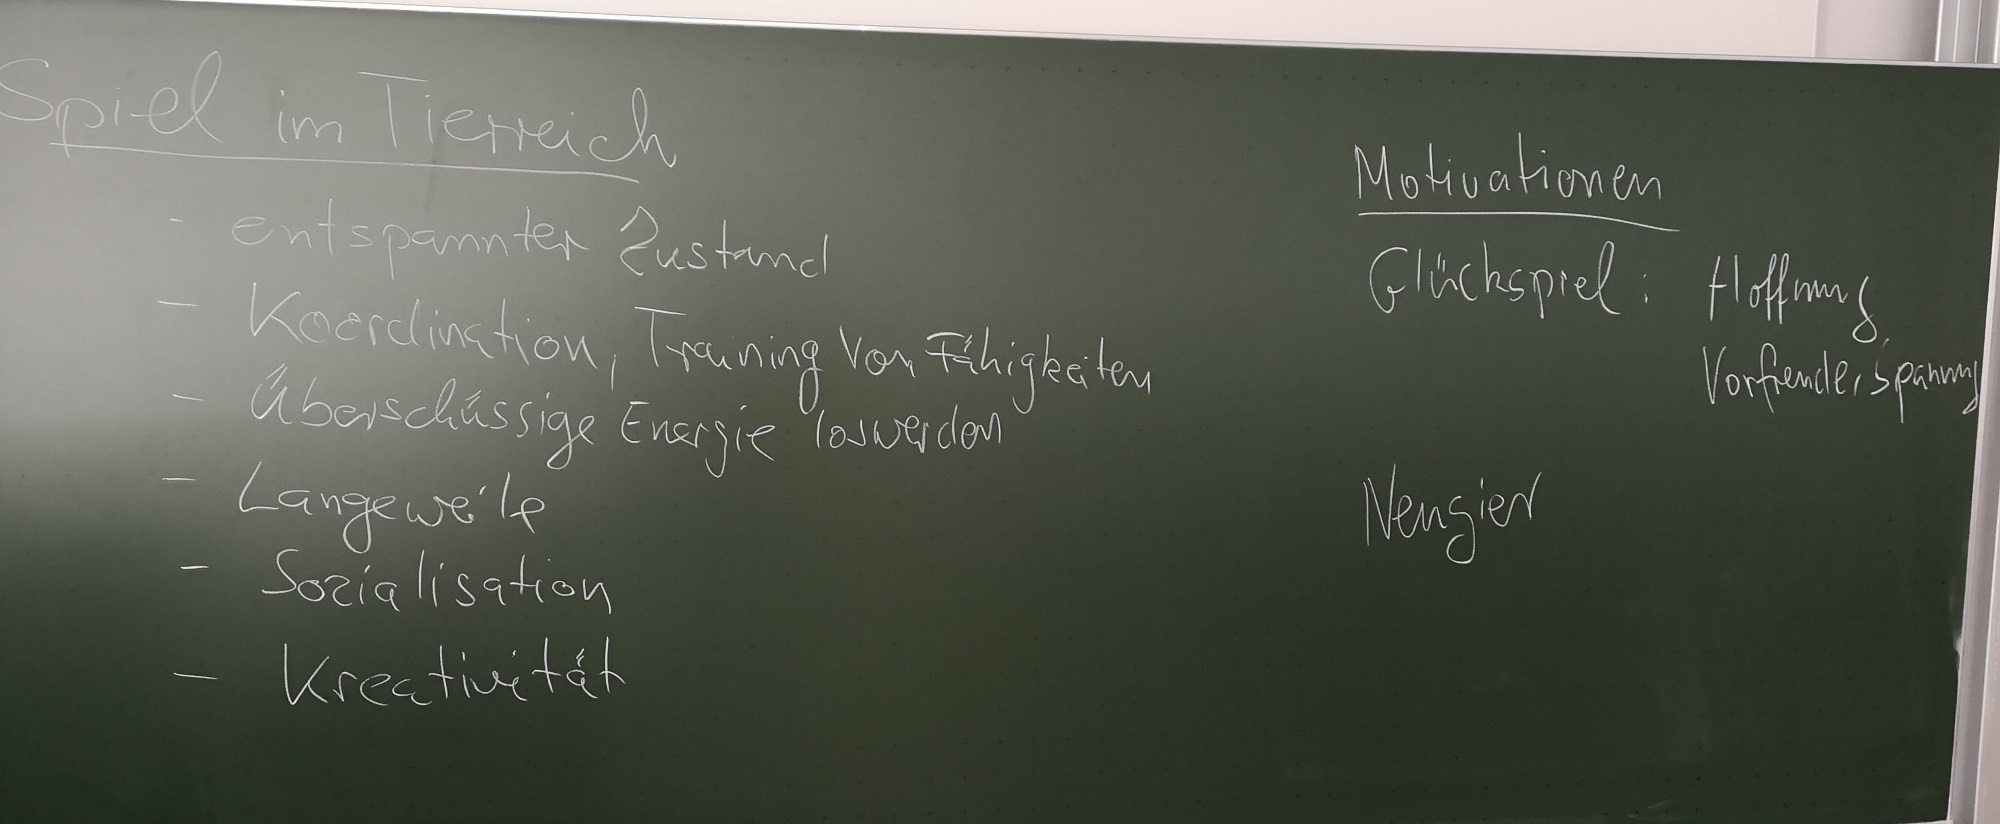 Spiel im Tierreich
- entspannter Zustand
- Koordination, Training von Fähigkeiten
- Überschüssige Energie loswerden
- Langeweile
- Sozialisation
- Kreativität
Motivationen
Glückspiel: Hoffnung,
Vorfreude, Spannung
Neugier